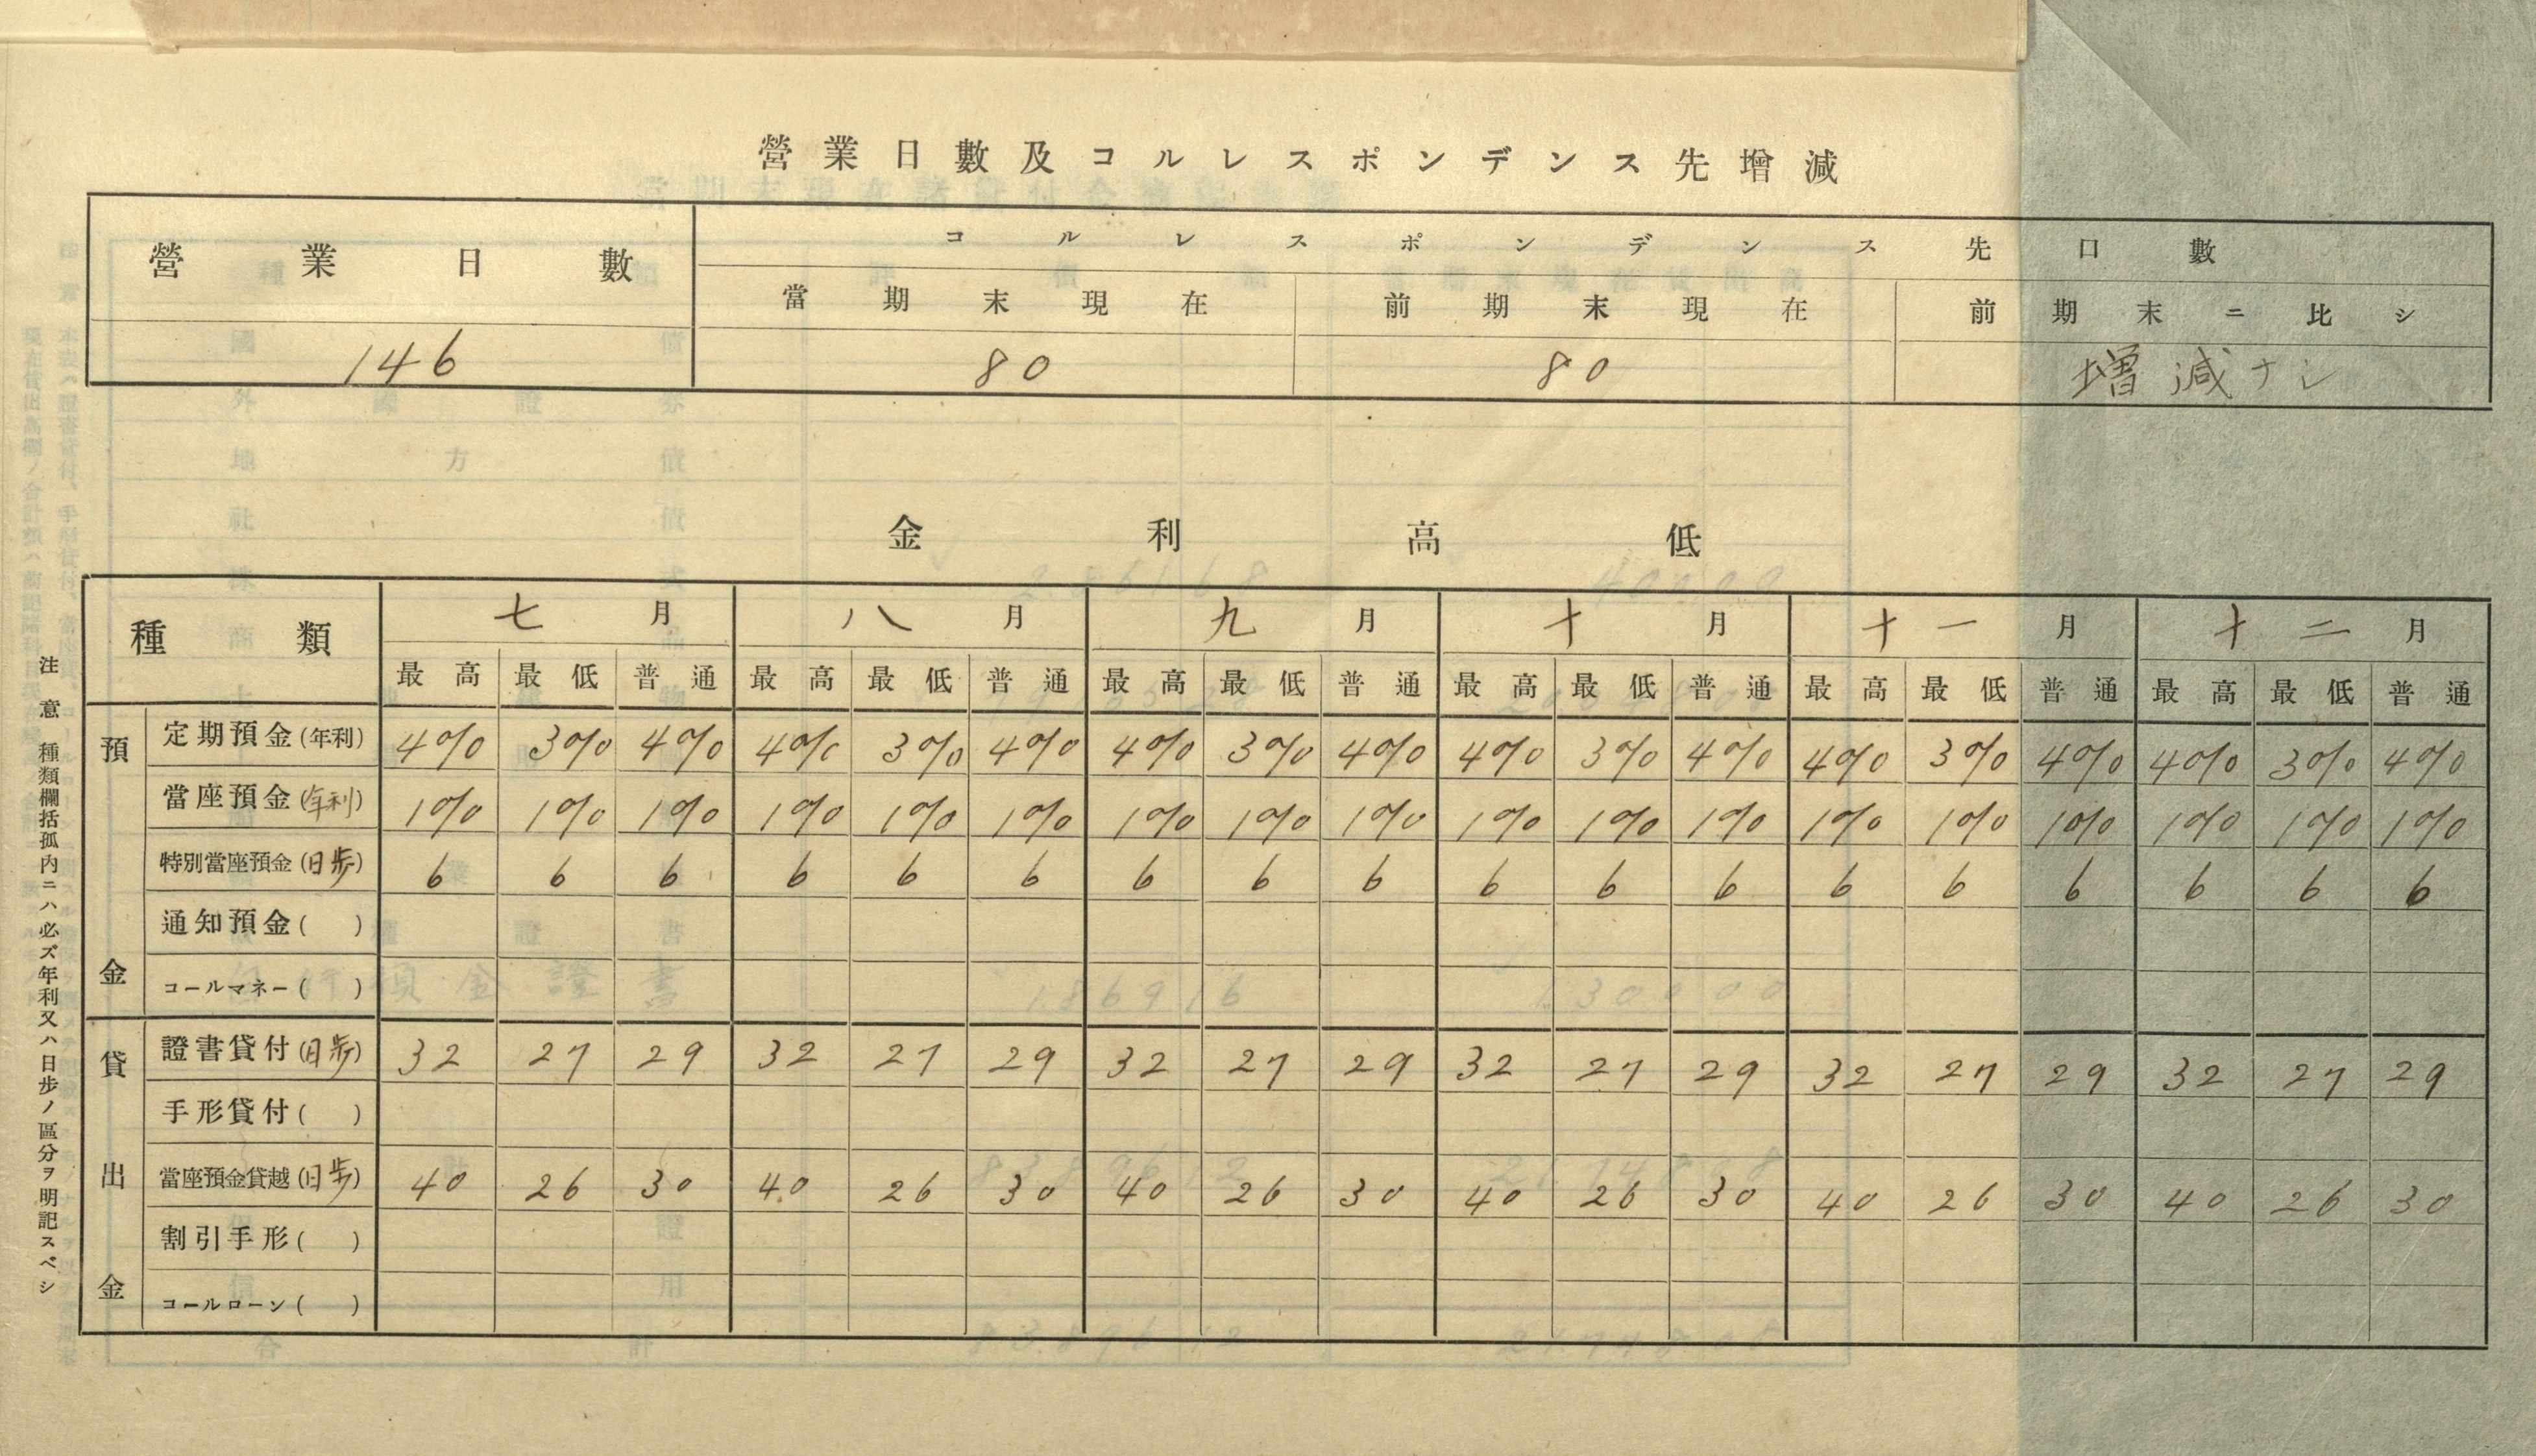 營業日數及コルレスポンデンス先增減
營業日數 コルレスポンデンス先口數
當期末現在 前期末現在 前期末ニ比シ
146 80 80 增減ナシ
金利高低
種類 七月 八月 九月 十月 十一月 十二月
最高 最低 普通 最高 最低 普通 最高 最低 普通 最高 最低 普通 最高 最低 普通 最高 最低 普通
預金
定期預金(年利) 4% 3% 4% 4% 3% 4% 4% 3% 4% 4% 3% 4% 4% 3% 4% 4% 3% 4%
當座預金(年利) 1% 1% 1% 1% 1% 1% 1% 1% 1% 1% 1% 1% 1% 1% 1% 1% 1% 1%
特別當座預金(日歩) 6 6 6 6 6 6 6 6 6 6 6 6 6 6 6 6 6 6
通知預金( )
コールマネー( )
貸出金
證書貸付(日歩) 32 27 29 32 27 29 32 27 29 32 27 29 32 27 29 32 27 29
手形貸付( )
當座預金貸越(日歩) 40 26 30 40 26 30 40 26 30 40 26 30 40 26 30 40 26 30
割引手形( )
コールローン( )
注意 種類欄括孤内ニハ必ズ年利又ハ日歩ノ區分ヲ明記スベシ